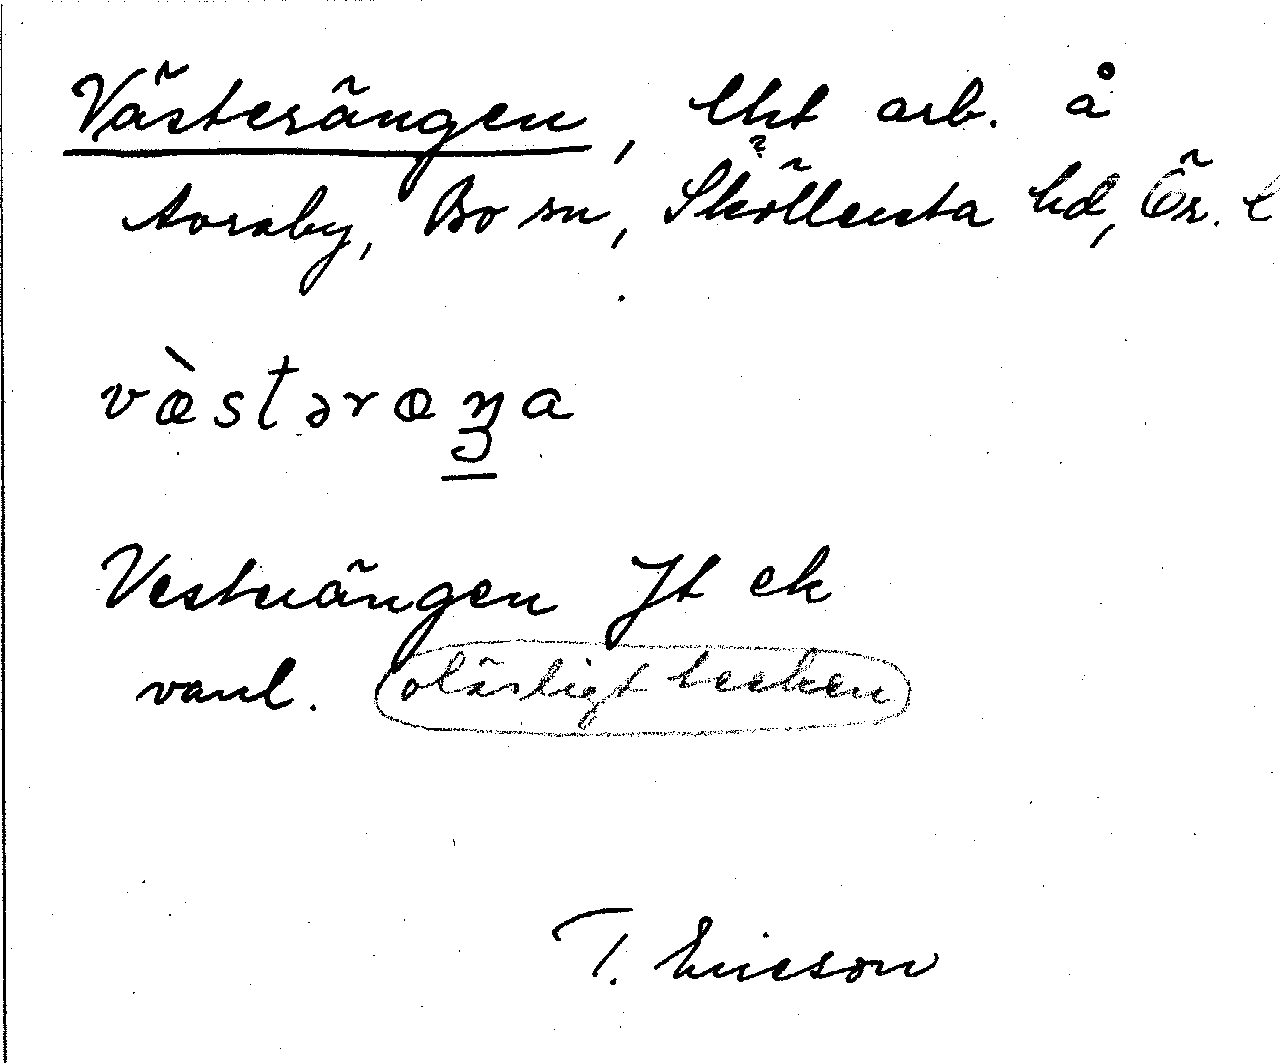 Västerängen, lht arb. å
Avraby, Bo sn, Sköllersta hd, Ör. l
væ̀stəræŋa
Vesterängen Jt ek
vanl. oläsligt tecken
T. Ericson